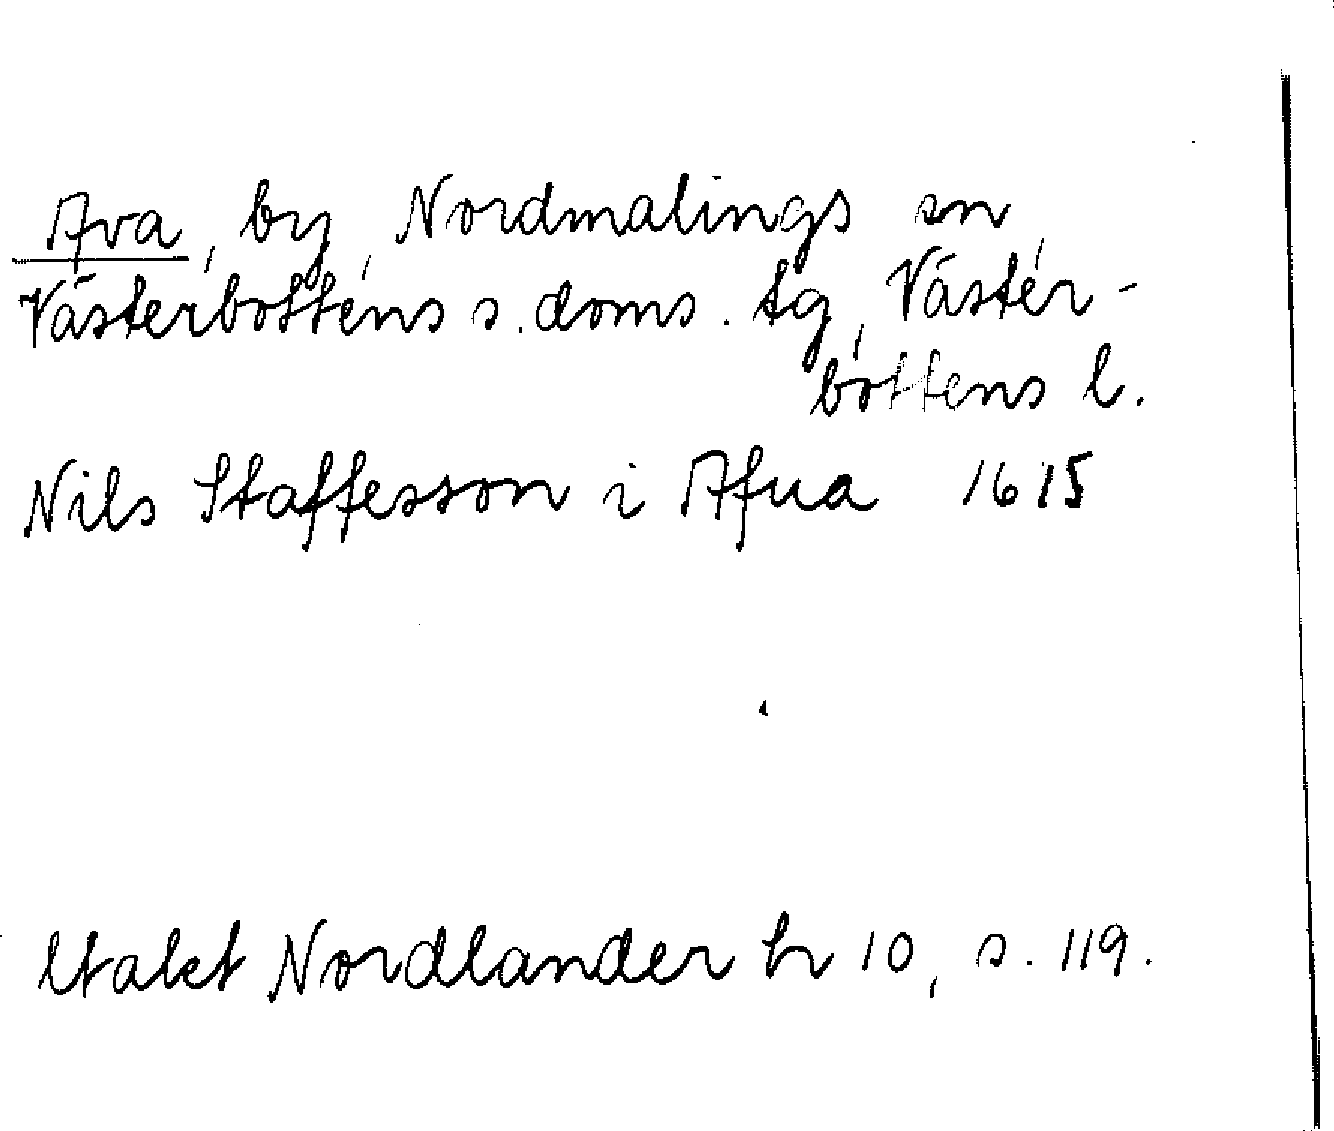 Ava, by, Nordmalings sn,
Västerbottens s. doms. tg, Väster-
bottens l.
Nils Staffesson i Afua 1615
Utalet Nordlander h 10, s. 119.